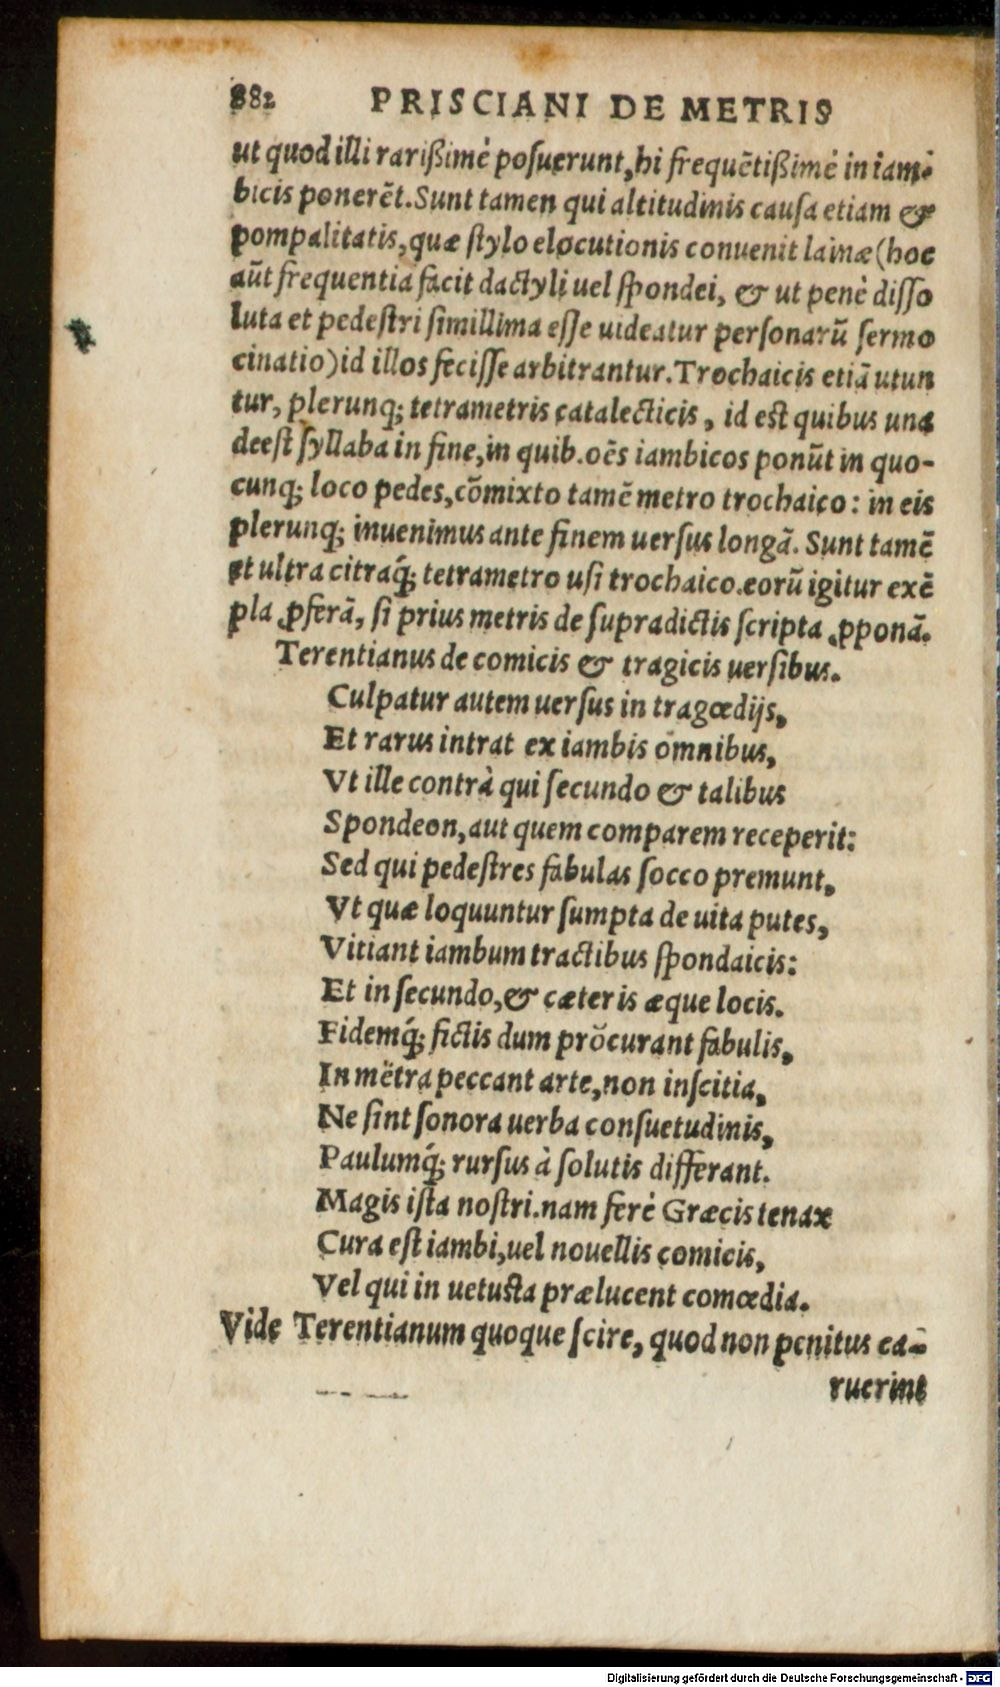 882 PRISCIANI DE METRIS
ut quod illi rarißimè posuerunt, hi frequẽtißimè in iam-
bicis ponerẽt. Sunt tamen qui altitudinis causa etiam &
pompalitatis, quæ stylo elocutionis conuenit lainæ (hoc
aũt frequentia facit dactyli uel spondei, & ut penè disso
luta et pedestri simillima esse uideatur personarũ sermo
cinatio) id illos fecisse arbitrantur. Trochaicis etiã utun
tur, plerunq; tetrametris catalecticis, id est quibus una
deest syllaba in fine, in quib. oẽs iambicos ponũt in quo-
cunq; loco pedes, cõmixto tamẽ metro trochaico: in eis
plerunq; inuenimus ante finem uersus longã. Sunt tamẽ
et ultra citraq́; tetrametro usi trochaico. eorũ igitur exẽ
pla ꝓferã, si prius metris de supradictis scripta ꝓponã.
Terentianus de comicis & tragicis uersibus.
Culpatur autem uersus in tragœdijs,
Et rarus intrat ex iambis omnibus,
Vt ille contrà qui secundo & talibus
Spondeon, aut quem comparem receperit:
Sed qui pedestres fabulas socco premunt,
Vt quæ loquuntur sumpta de uita putes,
Vitiant iambum tractibus spondaicis:
Et in secundo, & cæteris æque locis.
Fidemq́; fictis dum prŏcurant fabulis,
In mĕtra peccant arte, non inscitia,
Ne sint sonora uerba consuetudinis,
Paulumq́; rursus à solutis differant.
Magis ista nostri. nam ferè Græcis tenax
Cura est iambi, uel nouellis comicis,
Vel qui in uetusta prælucent comœdia.
Vide Terentianum quoque scire, quod non penitus ca-
ruerint
Digitalisierung gefördert durch die Deutsche Forschungsgemeinschaft - DFG